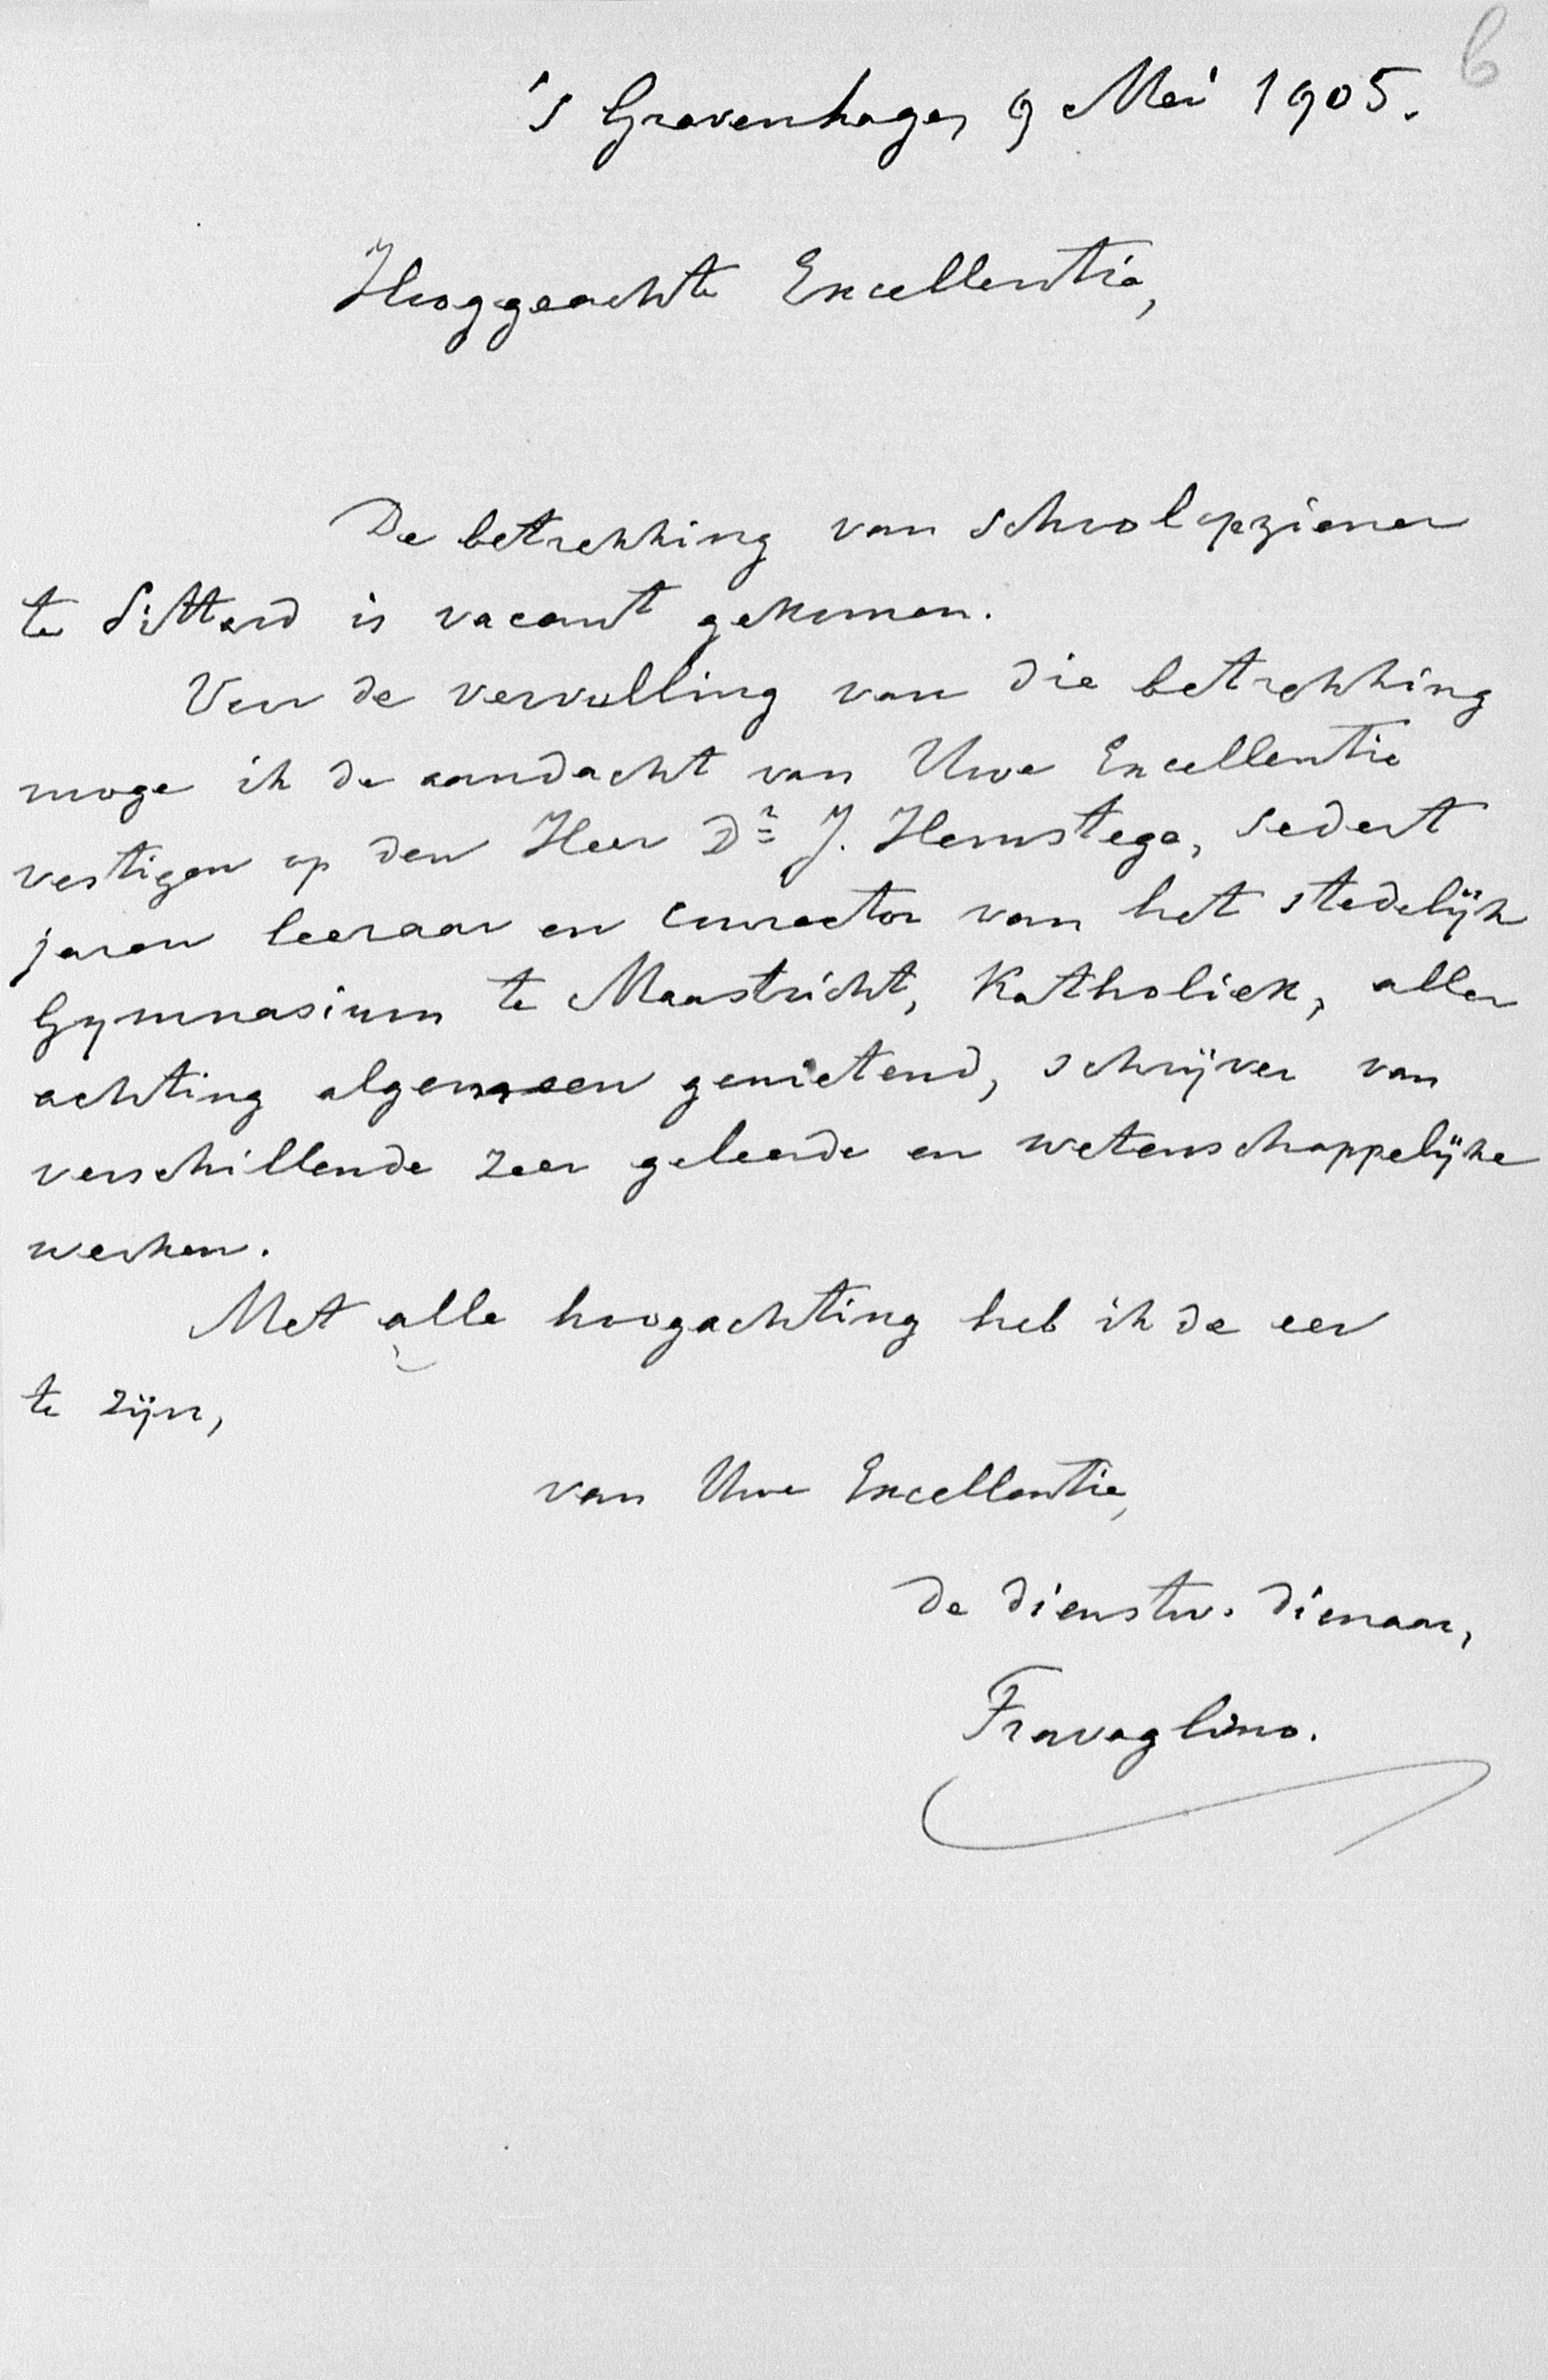 b
's Gravenhage, 9 Mei 1905.
Hooggeachte Excellentie,
De betrekking van schoolopziener
te Sittard is vacant gekomen.
Voor de vervulling van die betrekking
moge ik de aandacht van Uwe Excellentie
vestigen op den Heer Dr J. Hemstege, sedert
jaren leeraar en conrector van het stedelijk
Gymnasium te Maastricht, Katholiek, aller
achting algemeen genietend, schrijver van
verschillende zeer geleerde en wetenschappelijke
werken.
Met alle hoogachting heb ik de eer
te zijn,
van Uwe Excellentie,
de dienstw. dienaar,
Travaglino.